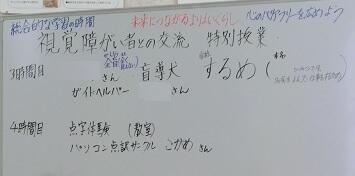 総合的な学習の時間
未来につながるよりよいくらし
心のバリアフリーを広めよう
視覚障がい者との交流 特別授業
3時間目
さん 盲導犬 するめ(
ガイドヘルパー さん
4時間目 点字体験 (教室)
パソコン点訳サークル こかめ さん